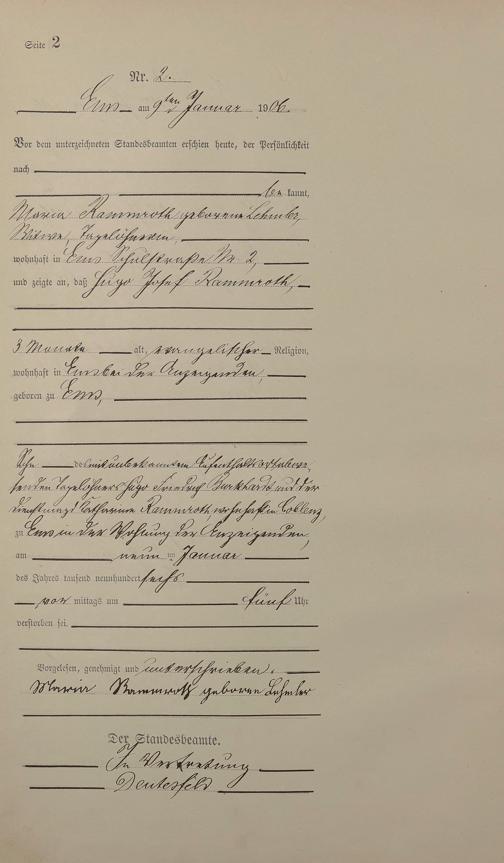 Seite 2
Nr. 2.
Ems am 9ten Januar 1906.
Vor dem unterzeichneten Standesbeamten erschien heute, der Persönlichkeit
nach
be kannt,
Maria Rammroth geborene
Witwe, Tagelöhnerin,
wohnhaft in Ems Schulstraße Nr. 2,
und zeigte an, daß Hugo Josef Rammroth,
3 Monate alt, evangelischer Religion,
wohnhaft in Ems bei der Anzeigenden,
geboren zu Ems,
Sohn des mit unbekanntem Aufenthaltsort abwe-
senden Tagelöhners Hugo Friedrich und der
Dienstmagd Catharina Rammroth, wohnhaft in Coblenz,
zu Ems in der Wohnung der Anzeigenden,
am neun ten Januar
des Jahres tausend neunhundert sechs
vor mittags um fünf Uhr
verstorben sei.
Vorgelesen, genehmigt und unterschrieben.
Maria Rammroth geborne
Der Standesbeamte.
In Vertretung